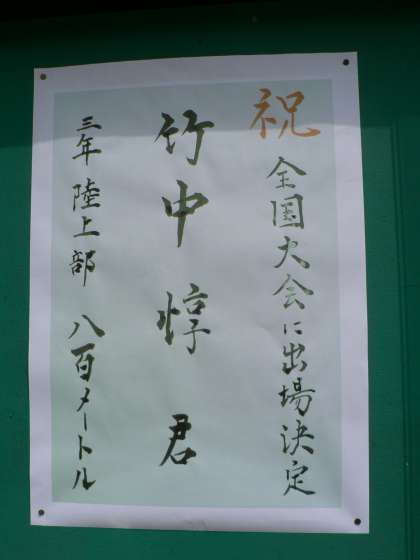 祝 全国大会に出場決定
竹中惇君
三年 陸上部 八百メートル